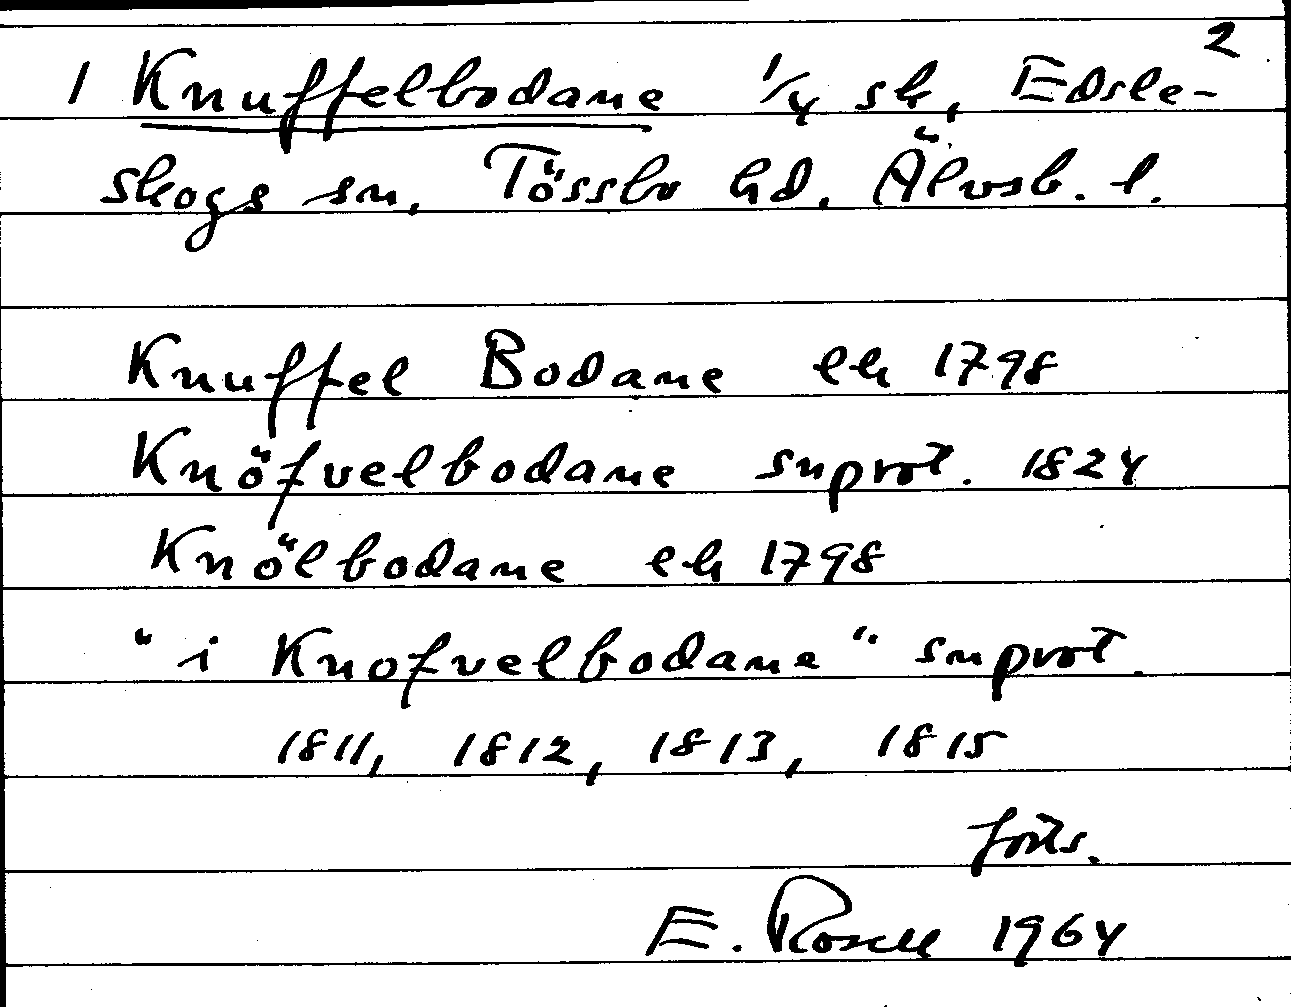 2
1 Knuffelbodane 1/4 sk, Edsle-
skogs sn, Tössbo hd, Älvsb. l.
Knuffel Bodane lh 1798
Knöfvelbodane snprot. 1824
Knölbodane lh 1798
"i Knofvelbodane" snprot.
1811, 1812, 1813, 1815
forts.
E. Rosell 1964